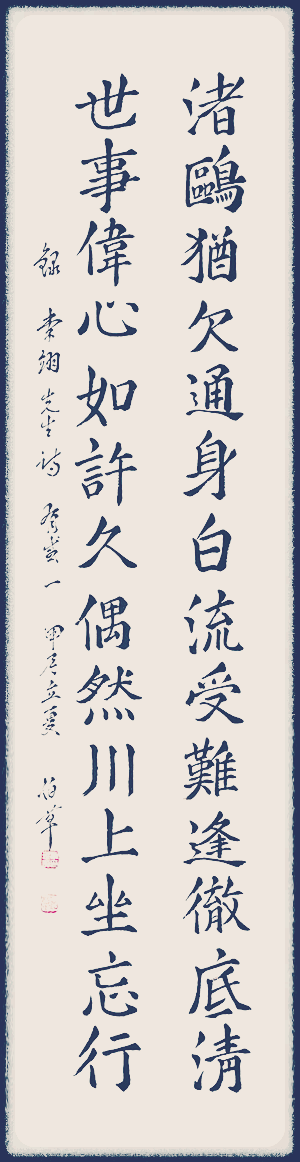 渚鷗猶欠通身白流受難逢徹底清
世事偉心如許久偶然川上坐忘行
録 翊先生詩 一 甲辰立夏